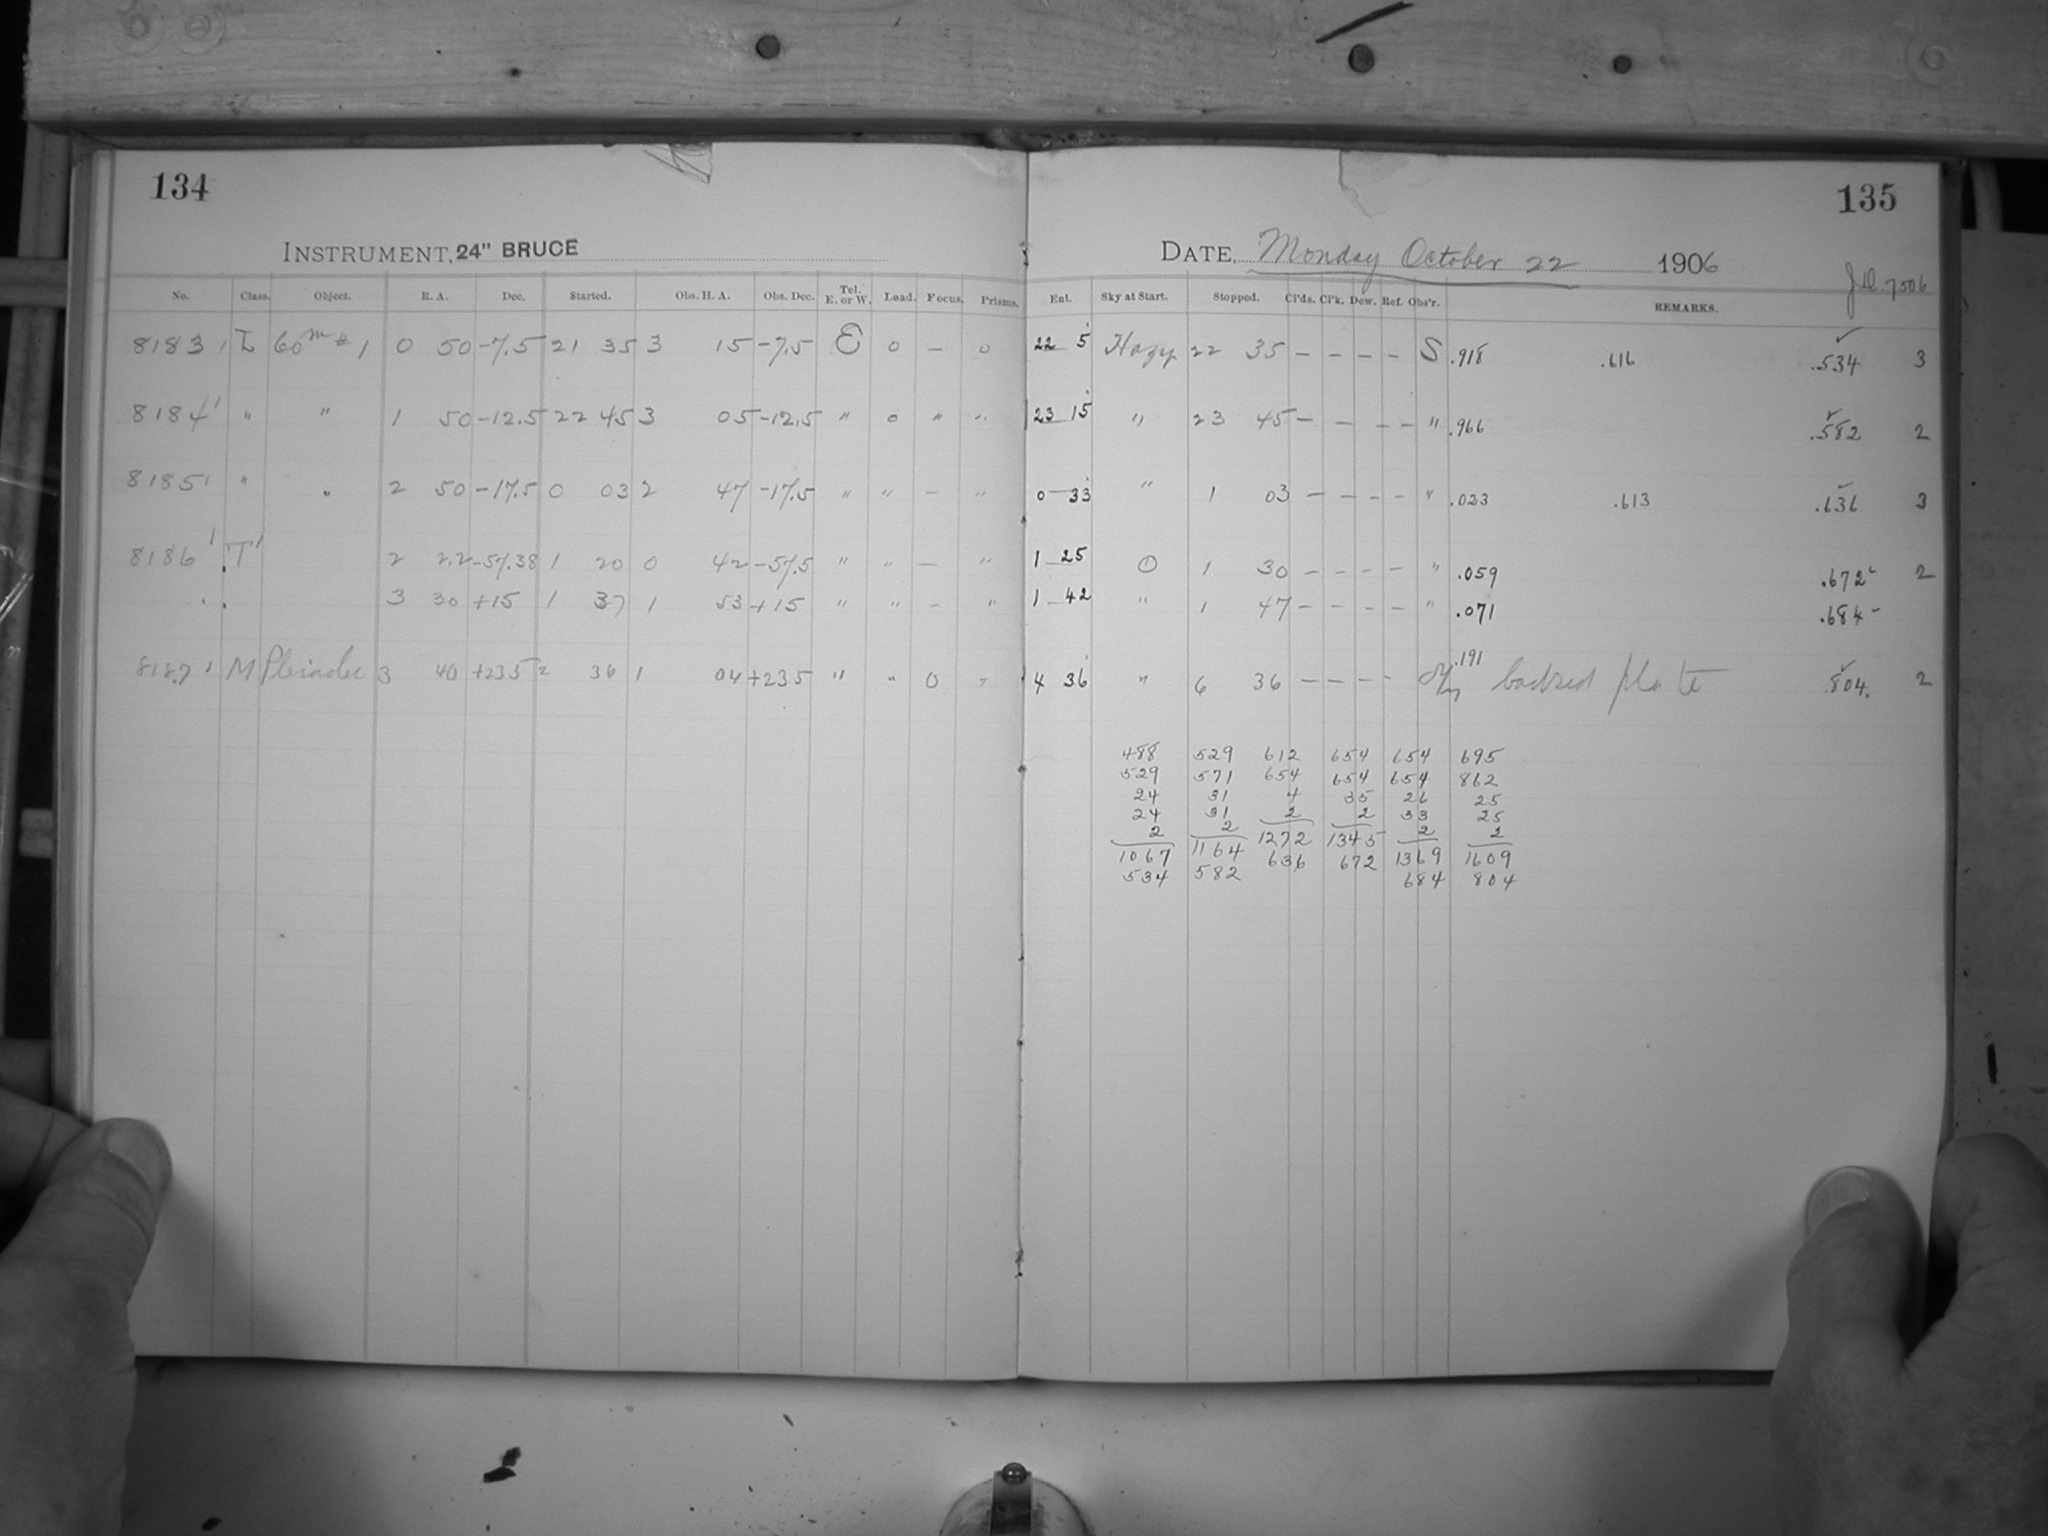 134
135
INSTRUMENT, 24" BRUCE
DATE, Monday October 22 1906
J.D. 7506
No. Class. Object. R. A. Dec. Started. Obs. H. A. Obs. Dec. Tel. E. or W. Load. Focus. Prisms. Ent. Sky at Start. Stopped. Cl'ds. Cl'k. Dew. Ref. Obs'r. REMARKS.
8183 1 L 60m # 1 0 50 -7.5 21 35 3 15 -7.5 E 0 – 0 22 5 Hazy 22 35 – – – – S .918 .616 .534 3
8184 1 " " 1 50 -12.5 22 45 3 05 -12.5 " 0 " " 23 15 " 23 45 – – – – " .966 .582 2
8185 1 " " 2 50 -17.5 0 03 2 47 -17.5 " " – " 0 33 " 1 03 – – – – " .023 .613 .636 3
8186 1 "T" 2 2.2 -57.38 1 20 0 42 -57.5 " " – " 1 25 0 1 30 – – – – " .059 .672 2
3 30 +15 1 37 1 53 +15 " " – " 1 42 " 1 47 – – – – " .071 .684
8187 1 M Pleiades 3 40 +23.5 2 36 1 04 +23.5 " " 0 " 4 36 " 6 36 – – – – .191 backed plate .804 2
488 529 612 654 654 695
529 571 654 654 654 862
24 31 4 35 26 25
24 31 2 2 33 25
2 2 1272 1345 2 2
1067 1164 636 672 1369 1609
534 582 684 804